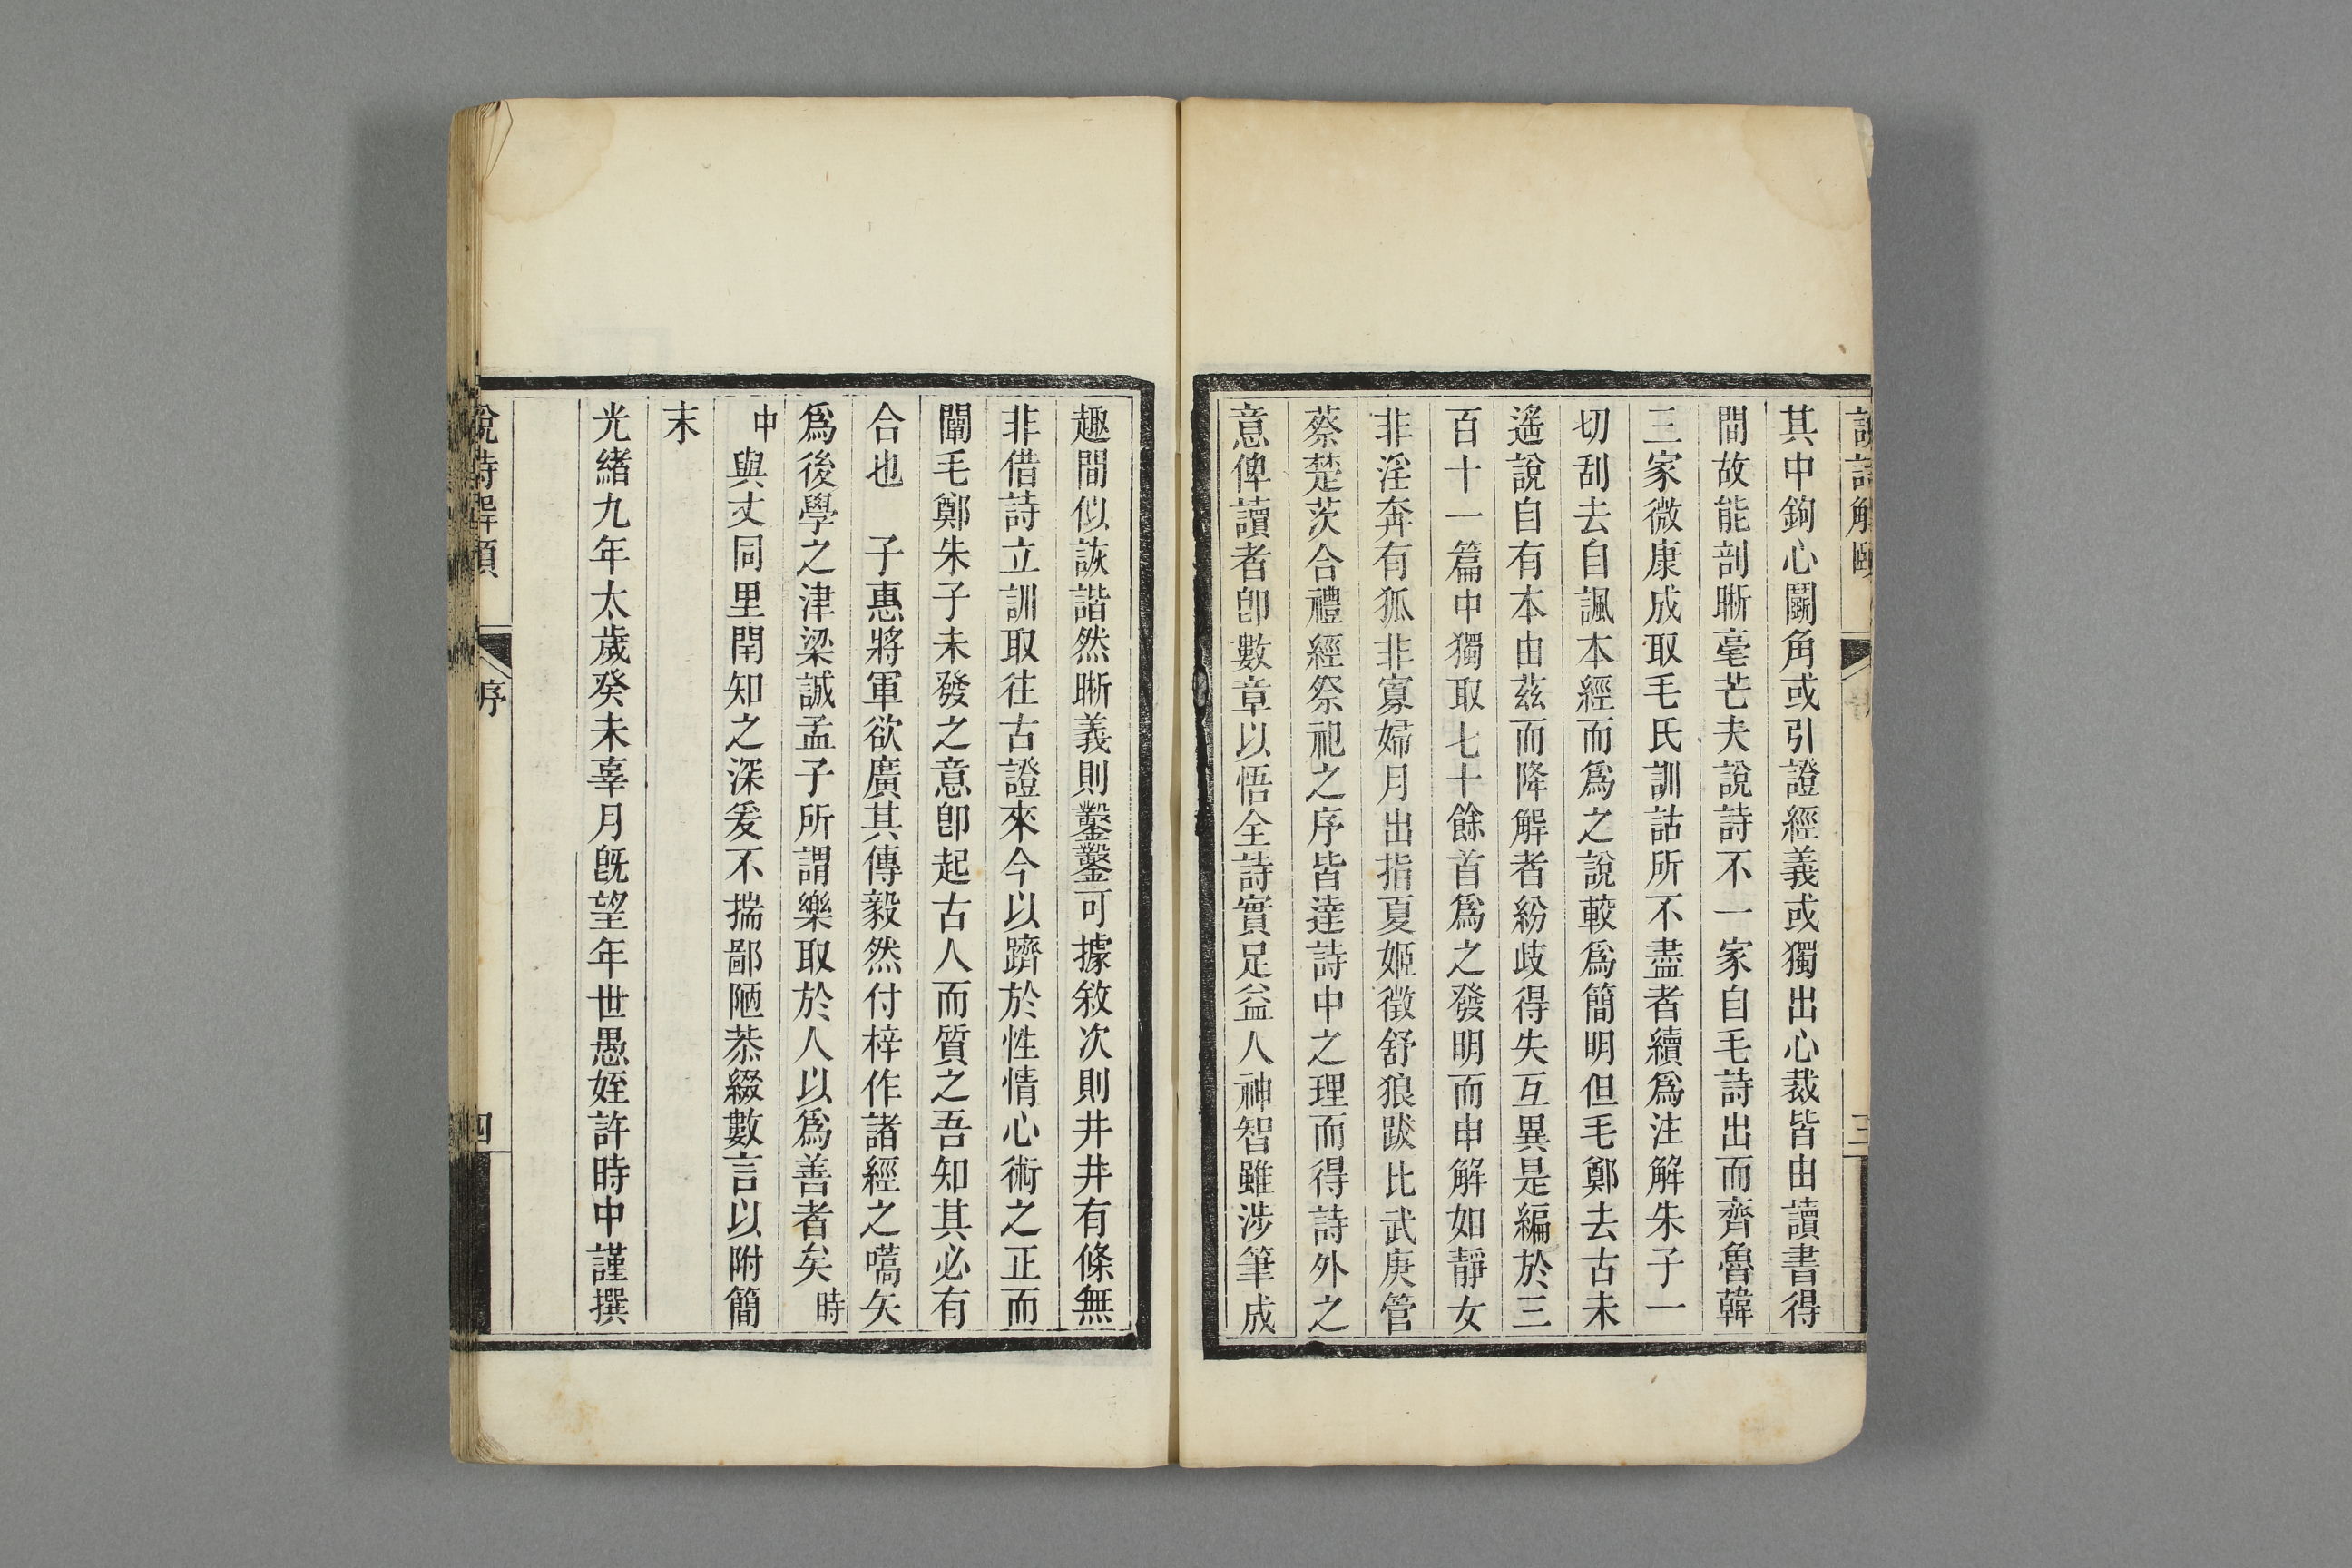 說詩解頤
三
其中鉤心鬭角或引證經義或獨出心裁皆由讀書得
間故能剖晰毫芒夫說詩不一家自毛詩出而齊魯韓
三家微康成取毛氏訓詁所不盡者續爲注解朱子一
切刮去自諷本經而爲之說較爲簡明但毛鄭去古未
遙說自有本由茲而降解者紛歧得失互異是編於三
百十一篇中獨取七十餘首爲之發明而申解如靜女
非淫奔有狐非寡婦月出指夏姬徵舒狼跋比武庚管
蔡楚茨合禮經祭祀之序皆達詩中之理而得詩外之
意俾讀者卽數章以悟全詩實足益人神智雖涉筆成
趣間似詼諧然晰義則鑿鑿可據敘次則井井有條無
非借詩立訓取往古證來今以躋於性情心術之正而
闡毛鄭朱子未發之意卽起古人而質之吾知其必有
合也　子惠將軍欲廣其傳毅然付梓作諸經之嚆矢
爲後學之津梁誠孟子所謂樂取於人以爲善者矣時
中與丈同里閈知之深爰不揣鄙陋恭綴數言以附簡
末
光緒九年太歲癸未辜月旣望年世愚姪許時中謹撰
說詩解頤
序
四